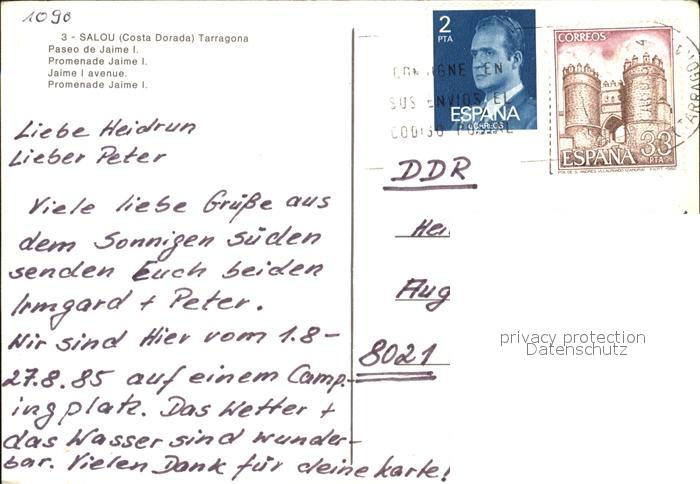 1090
3 - SALOU (Costa Dorada) Tarragona
Paseo de Jaime I.
Promenade Jaime I.
Jaime I avenue.
Promenade Jaime I.
Liebe Heidrun
Lieber Peter
Viele liebe Grüße aus
dem Sonnigen Süden
senden Euch beiden
Irmgard + Peter.
Wir sind Hier vom 1.8-
27.8.85 auf einem Camp-
ingplatz. Das Wetter +
das Wasser sind wunder-
bar. Vielen Dank für deine Karte!
2
PTA
ESPAÑA
CORREOS
CORREOS
33
ESPAÑA PTA
CONSIGNE EN
SUS ENVIOS EL
CODIGO POSTAL
TARRAGONA
DDR
Hei
Aug
8021
privacy protection
Datenschutz